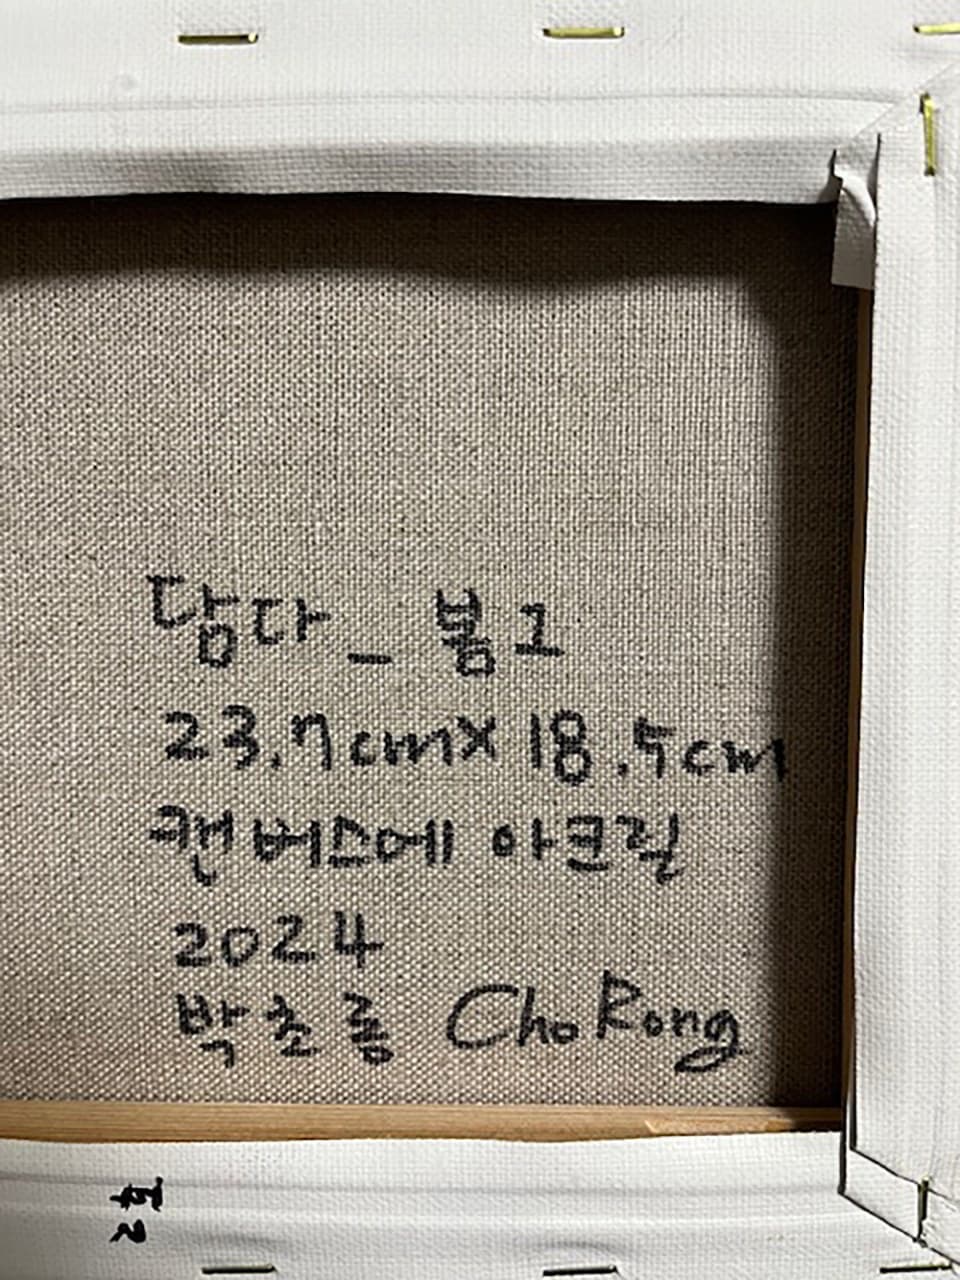 담다_봄1
23.7cm×18.5cm
캔버스에 아크릴
2024
박초롱 ChoRong